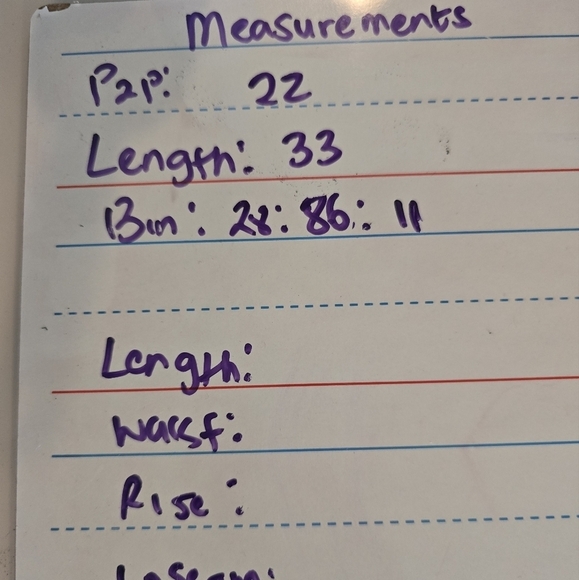 Measurements
P2P: 22
Length: 33
Bin: 28: 86: 11
Length:
Waist:
Rise:
Inseam: